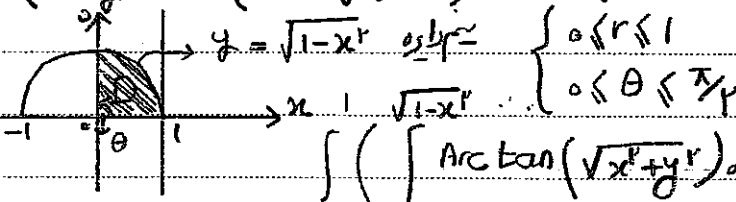 y = √(1-x²) { 0 ≤ r ≤ 1
-1 0 θ 1 x 1 √(1-x²) 0 ≤ θ ≤ π/۲
∫ ( ∫ Arctan(√(x²+y²))